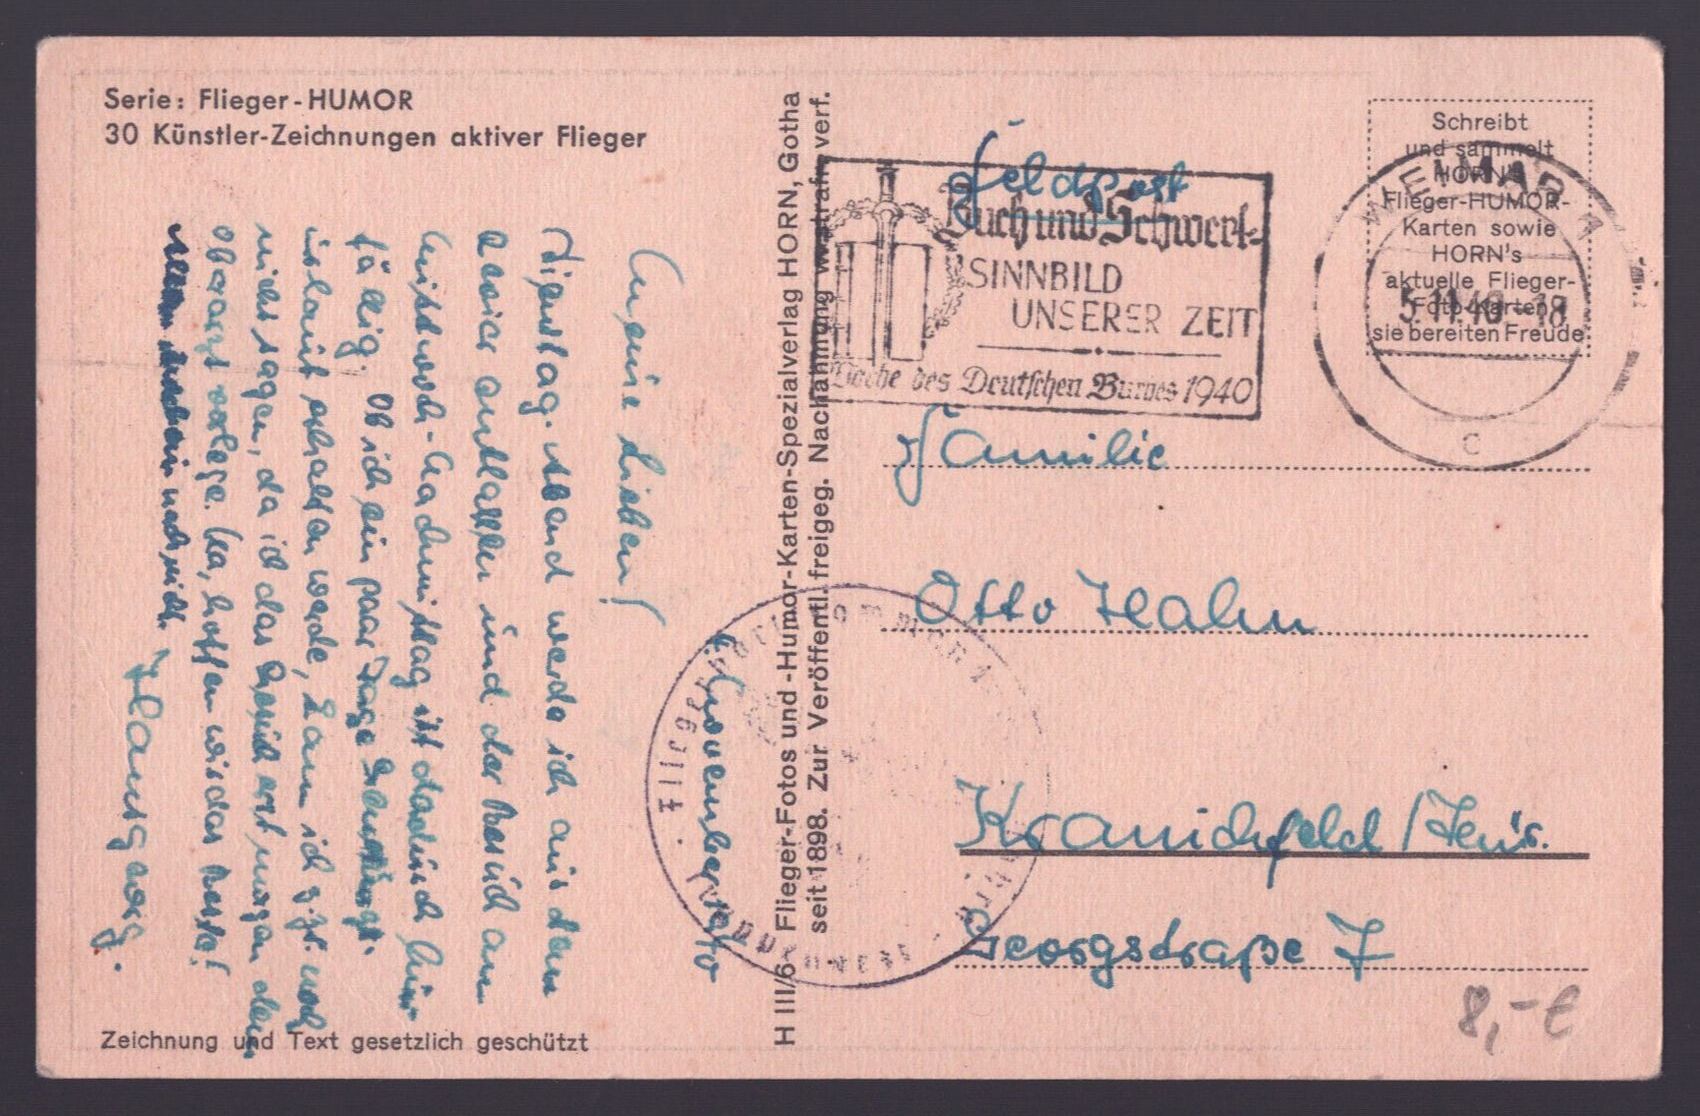 Serie: Flieger-HUMOR
30 Künstler-Zeichnungen aktiver Flieger
4. November 40
Meine Lieben!
Dienstag-Abend werde ich aus dem
Revier entlassen und der Besuch am
Mittwoch-Nachmittag ist dadurch hin-
fällig. Ob ich ein paar Tage
Urlaub erhalten werde, kann ich Egst noch
nicht sagen, da ich das Gesuch erst morgen dem
Oberarzt vorlege. Na, hoffen wir das Beste!
Hansgeorg.
Zeichnung und Text gesetzlich geschützt
H III/6 Flieger-Fotos und -Humor-Karten-Spezialverlag HORN, Gotha
seit 1898. Zur Veröffentl. freigeg. Nachahmung w. strafr. verf.
Feldpost
Buch und Schwert-
SINNBILD
UNSERER ZEIT
Woche des Deutschen Buches 1940
Schreibt
und sammelt
HORN'S
Flieger-HUMOR-
Karten sowie
HORN's
aktuelle Flieger-
Foto-Karten
sie bereiten Freude
WEIMAR 1
5.11.40-18
C
Familie
Otto Hahn
Kranichfeld/Thür.
Georgstraße 7
8,-€